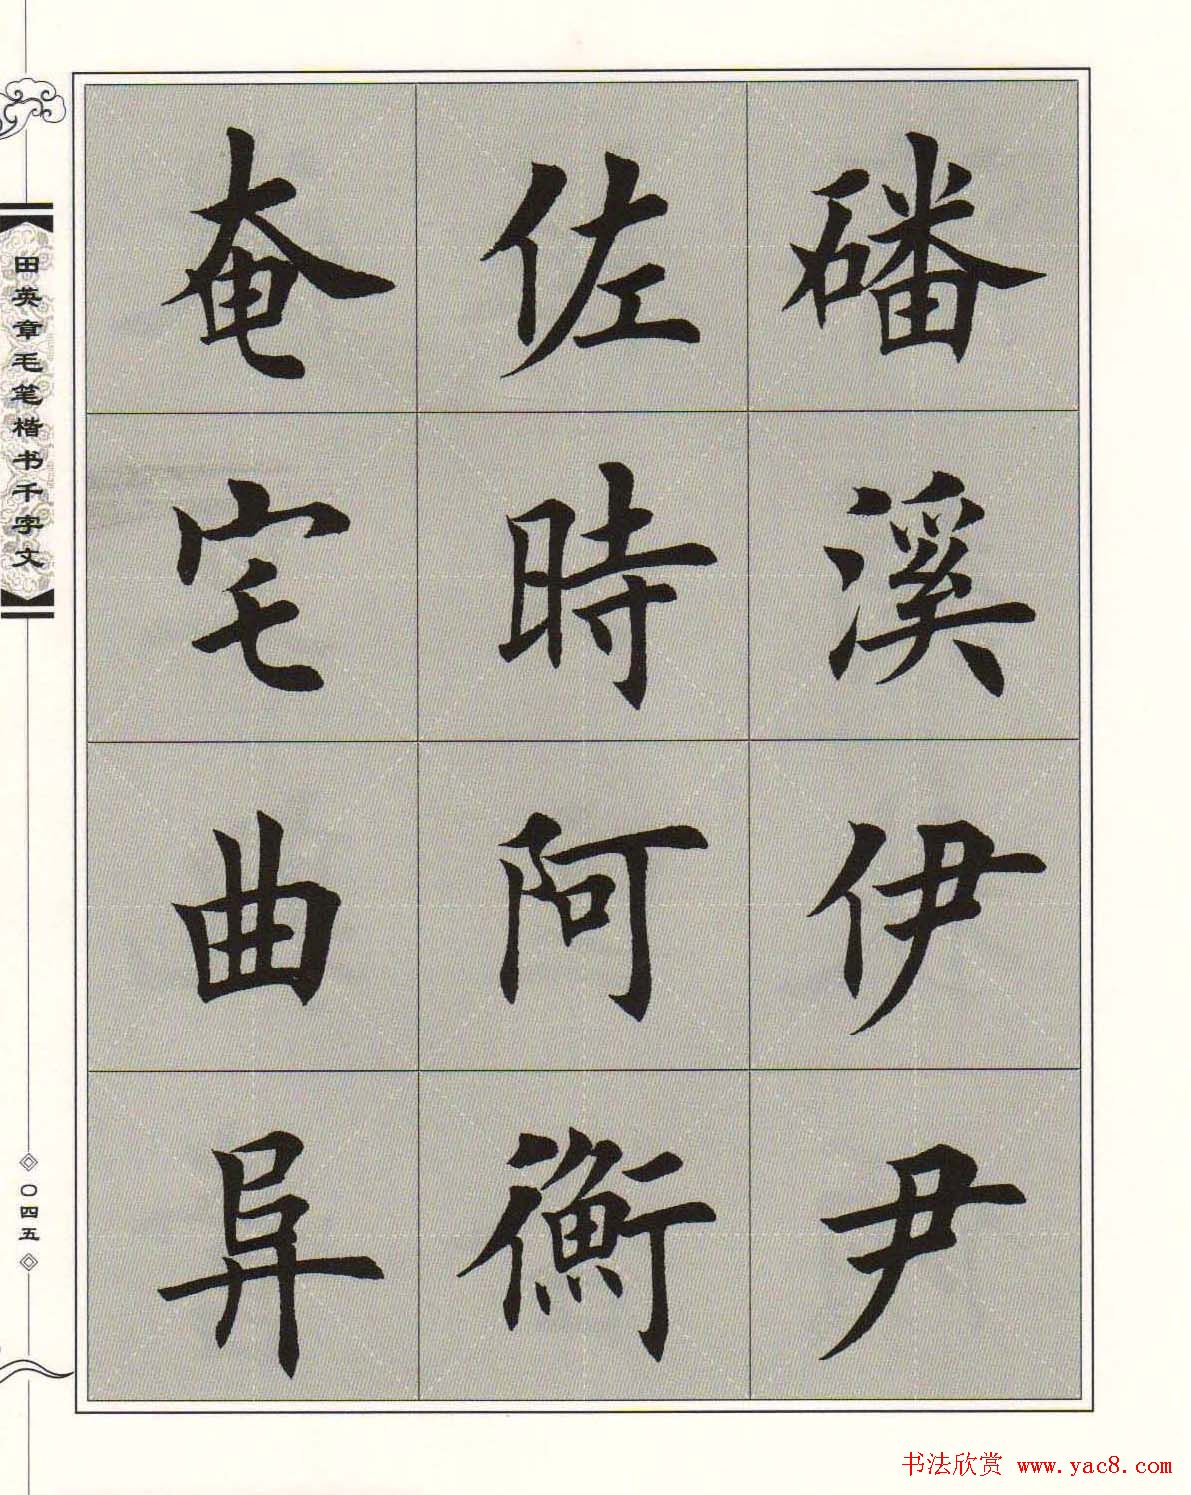 磻溪伊尹
佐時阿衡
奄宅曲阜
田英章毛笔楷书千字文
〇四五
书法欣赏 www.yac8.com